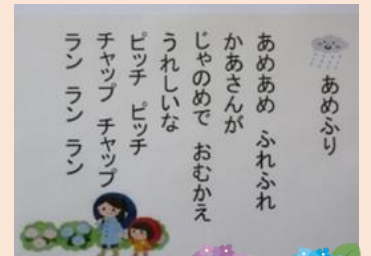 あめふり
あめあめ ふれふれ
かあさんが
じゃのめで おむかえ
うれしいな
ピッチ ピッチ
チャップ チャップ
ラン ラン ラン